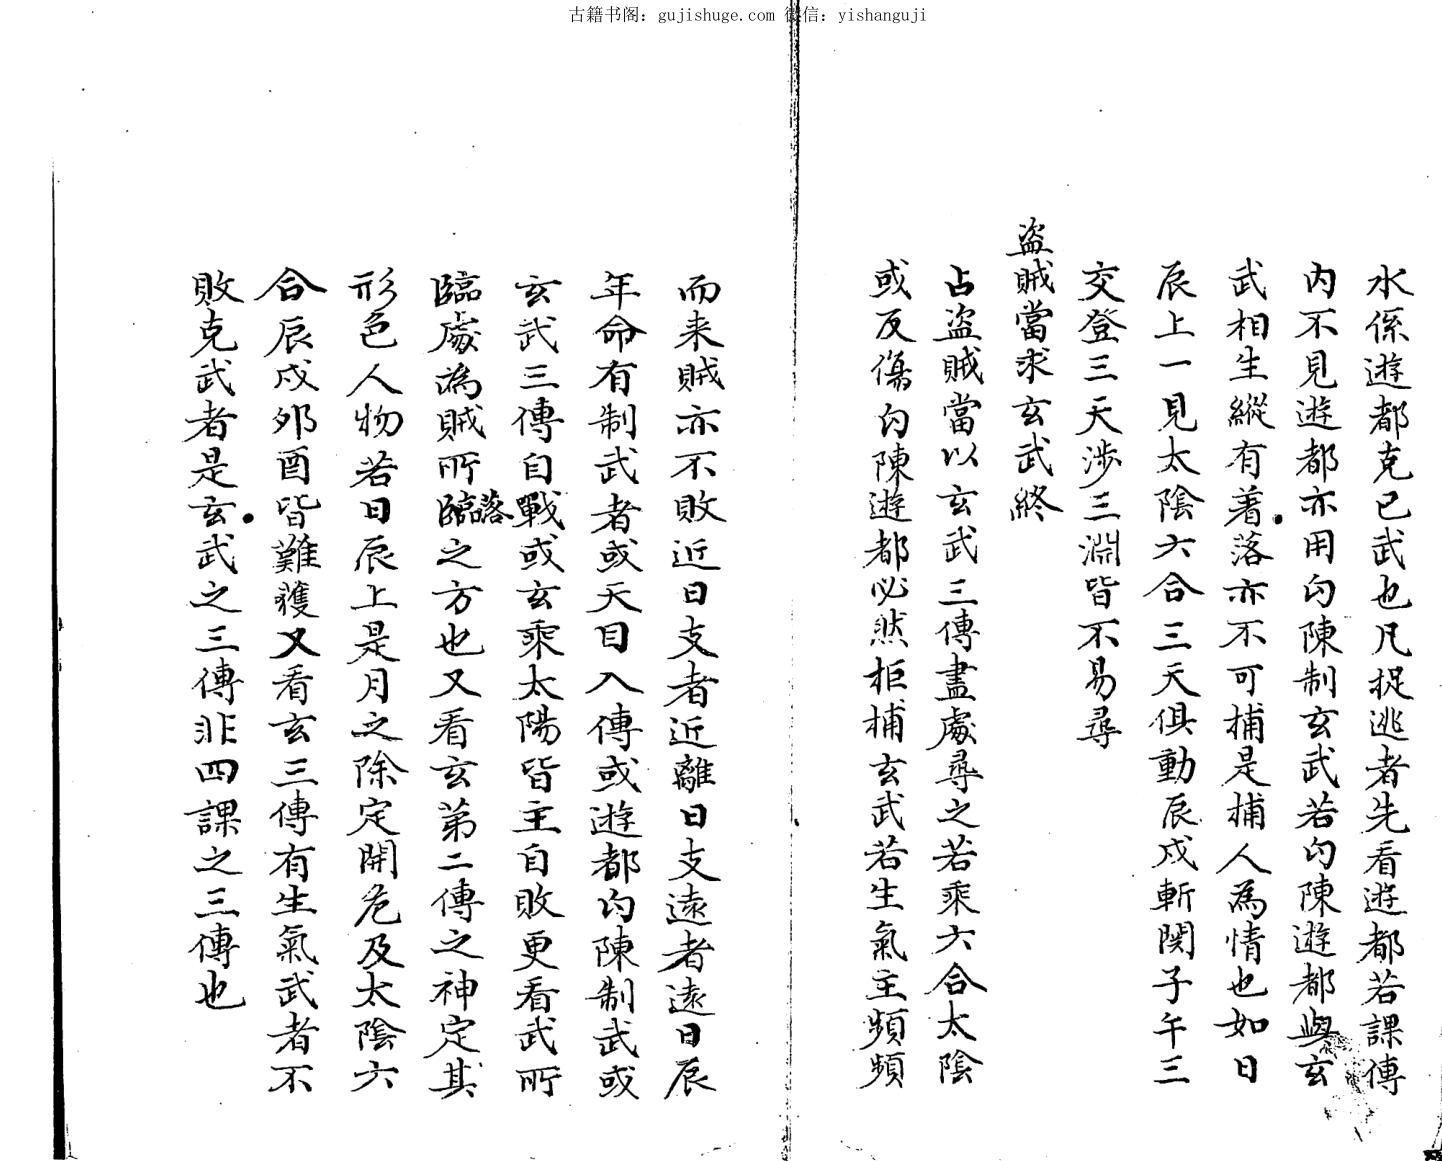 古籍书阁：gujishuge.com 微信：yishanguji
水係遊都克已武也凡捉逃者先看遊都若課傳
内不見遊都亦用勾陳制玄武若勾陳遊都與玄
武相生縱有着落亦不可捕是捕人為情也如日
辰上一見太陰六合三天俱動辰戌斬関子午三
交登三天涉三淵皆不易尋
盗賊當求玄武終
占盗賊當以玄武三傳盡處尋之若乘六合太陰
或反傷勾陳遊都必然拒捕玄武若生氣主頻頻
而来賊亦不敗近日支者近離日支遠者遠日辰
年命有制武者或天目入傳或遊都勾陳制武或
玄武三傳自戰或玄乘太陽皆主自敗更看武所
臨處為賊所臨落之方也又看玄第二傳之神定其
形色人物若日辰上是月之除定開危及太陰六
合辰戌夘酉皆難獲又看玄三傳有生氣武者不
敗克武者是玄武之三傳非四課之三傳也